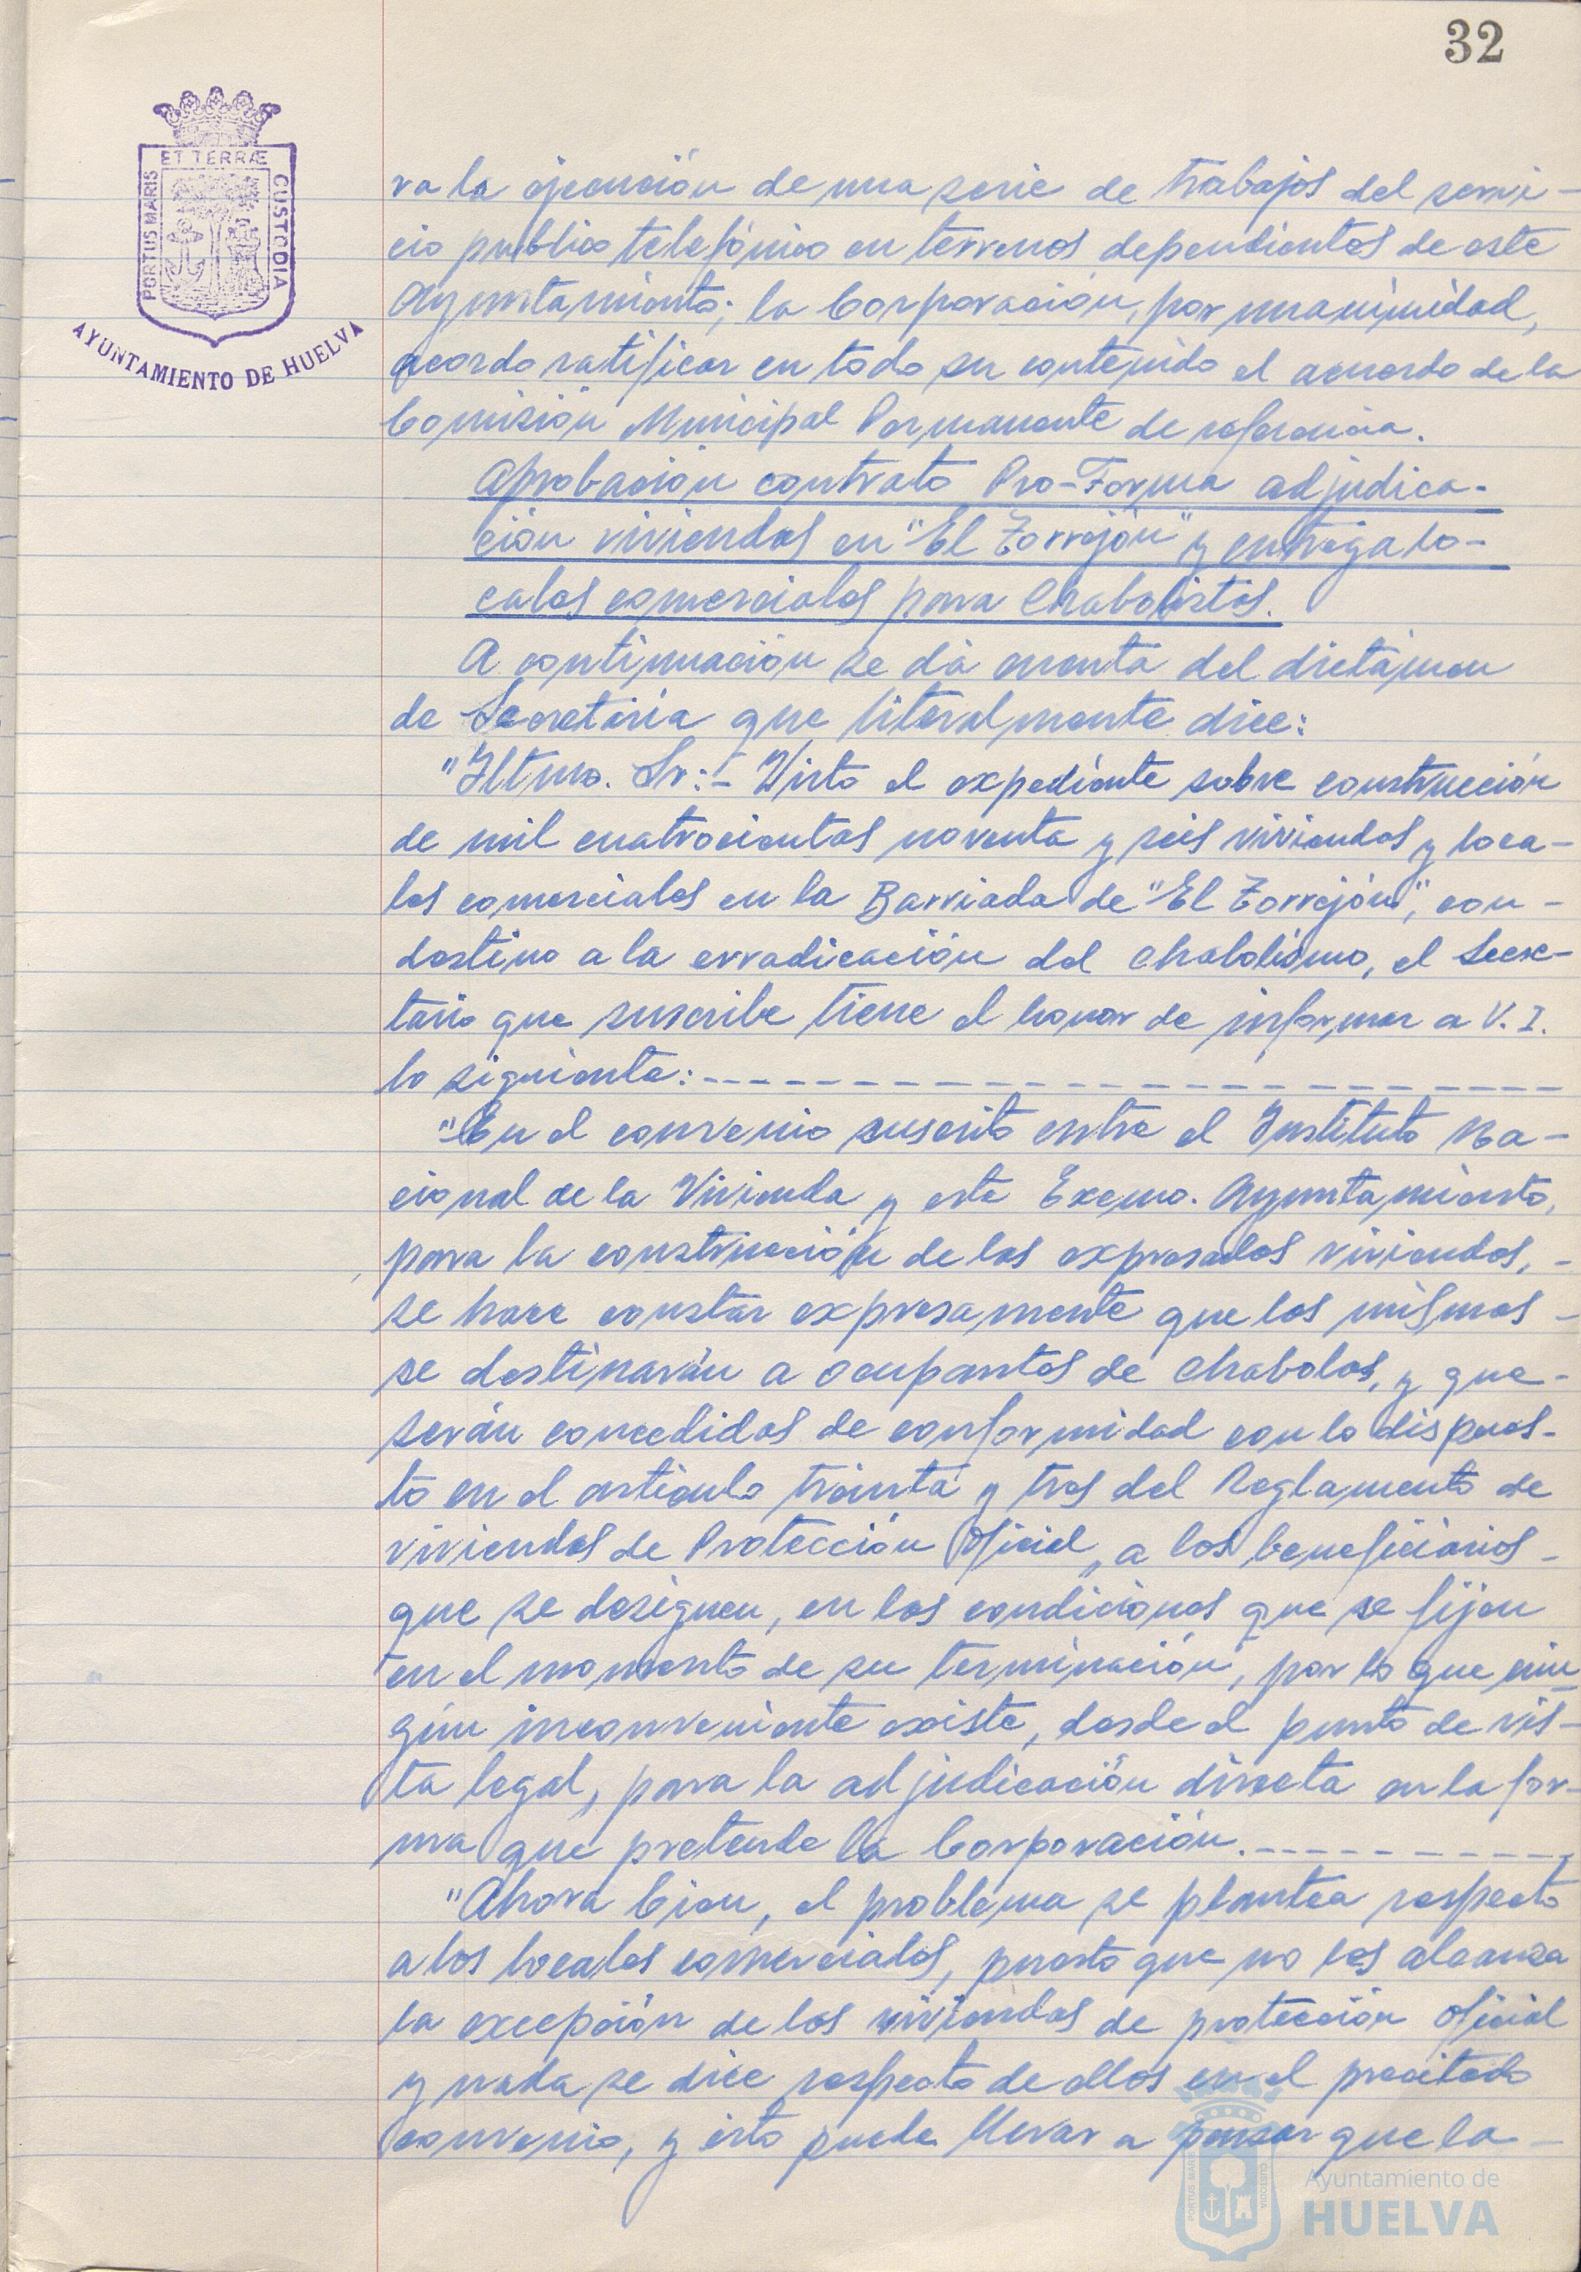 32
ET TERRÆ
PORTUS MARIS
CUSTODIA
AYUNTAMIENTO DE HUELVA
ra la ejecución de una serie de trabajos del servi-
cio publico telefónico en terrenos dependientes de este
Ayuntamiento; la Corporación, por unanimidad,
acordo ratificar en todo su contenido el acuerdo de la
Comisión Municipal Permanente de referencia.
Aprobación contrato Pro-Forma adjudica-
ción viviendas en "El Torrejón" y entrega lo-
cales comerciales para Chabolistas.
A continuación se dá cuenta del dictámen
de Secretaría que literalmente dice:
"Iltmo. Sr:- Visto el expediente sobre construcción
de mil cuatrocientas noventa y seis viviendas y loca-
les comerciales en la Barriada de "El Torrejón", con-
destino a la erradicación del chabolismo, el Secre-
tario que suscribe tiene el honor de informar a V. I.
lo siguiente:
"En el convenio suscrito entre el Instituto Na-
cional de la Vivienda y este Excmo. Ayuntamiento,
para la construcción de las expresadas viviendas,-
se hace constar expresamente que las mismas-
se destinarán a ocupantes de chabolas, y que-
serán concedidas de conformidad con lo dispues-
to en el artículo treinta y tres del Reglamento de
viviendas de Protección Oficial, a los beneficiarios-
que se designen, en las condiciones que se fijen
en el momento de su terminación, por lo que nin
gún inconveniente existe, desde el punto de vis-
ta legal, para la adjudicación directa en la for-
ma que pretende la Corporación.
"Ahora bien, el problema se plantea respecto
a los locales comerciales, puesto que no les alcanza
la excepción de las viviendas de protección oficial
y nada se dice respecto de ellos en el precitado
convenio, y ésto puede llevar a pensar que la-
Ayuntamiento de
HUELVA